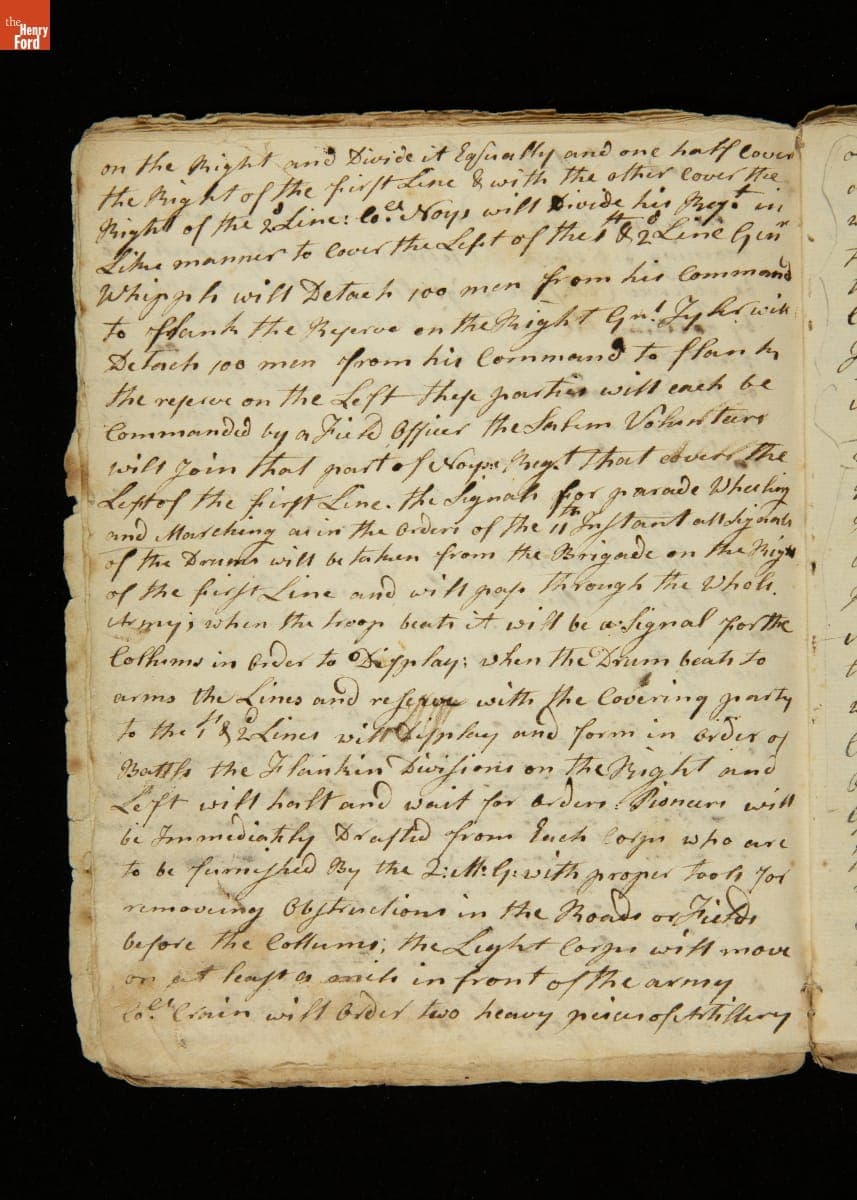 the
Henry
Ford
on the Right and Divide it Equally and one half Cover
the Right of the first Line & with the other Cover the
Right of the 2d Line: Col. Noys will Divide his Regt in
Like manner to Cover the Left of the 1st & 2d Line Genl
Whipple will Detach 100 men from his Command
to flank the Reserve on the Right Gnl Tyler will
Detach 100 men from his Command to flank
the reserve on the Left these parties will each be
Commanded by a Field Officer the Salem Volunteers
will Join that part of Noyes Regt that covers the
Left of the first Line. the Signals for parade Wheeling
and Marching as in the Orders of the 11th Instant all Signals
of the Drums will be taken from the Brigade on the Right
of the first Line and will pass through the Whole.
Army; when the troop beats it will be a Signal for the
Collums in Order to Display; when the Drum beats to
arms the Lines and reserve with the Covering party
to the 1st & 2d Lines will Display and form in Order of
Battle the Flankin Divisions on the Right and
Left will halt and wait for orders: Pioneers will
be Immediately Drafted from Each Corps who are
to be furnished By the Q: M: G: with proper tools for
removing Obstructions in the Roads or Fields
before the Collums; the Light Corps will move
on at least a mile in front of the army
Col. Crain will Order two heavy pieces of Artillery